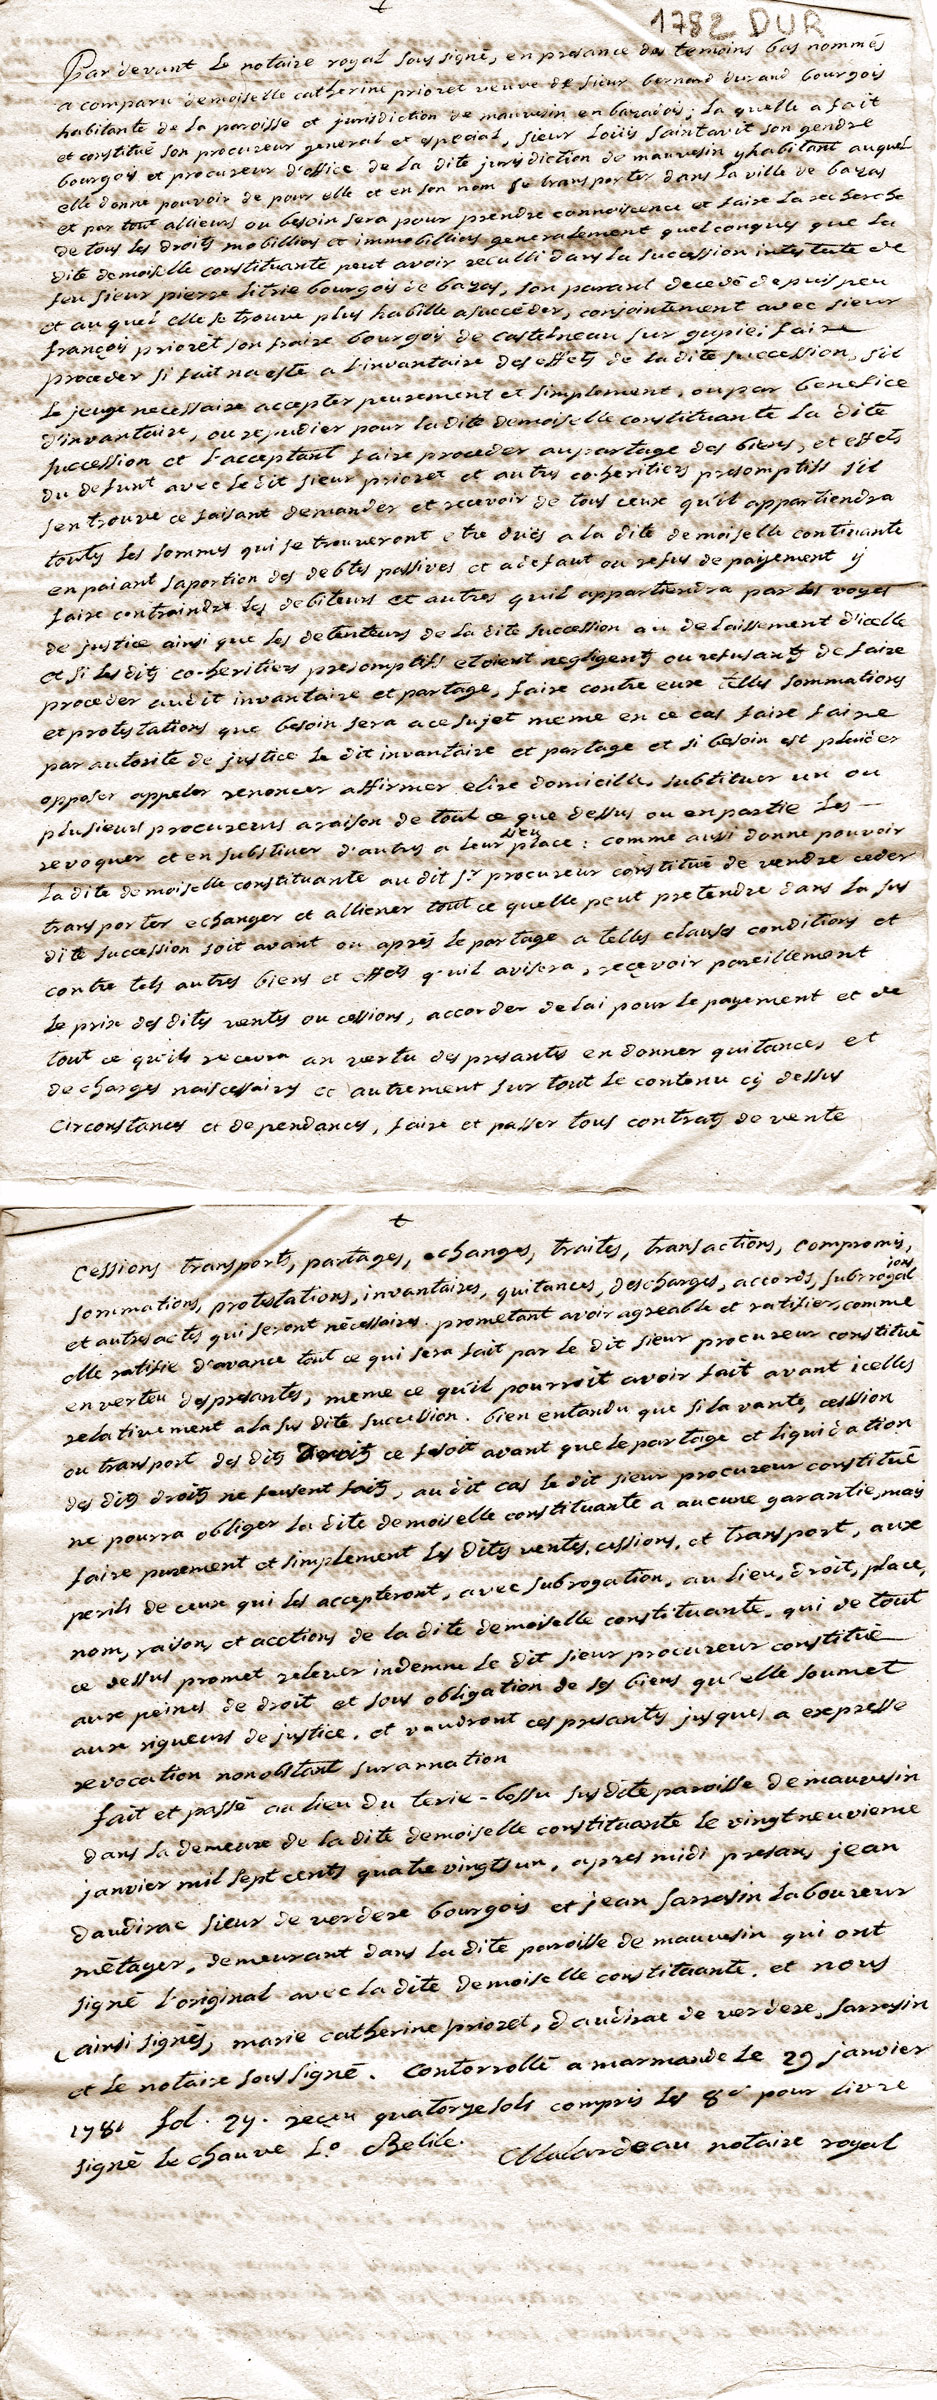 1782 DUR
Par devant le notaire royal sous signé, en presance des temoins bas nommés
a comparu demoiselle catherine prioret veuve de sieur bernard durand bourgois
habitante de la paroisse et jurisdiction de mauvesin en bazadois; la quelle a fait
et constitué son procureur general et especial, sieur loüis saintavit son gendre
bourgois et procureur d'office de la dite jurisdiction de mauvesin y habitant auquel
elle donne pouvoir de pour elle et en son nom se transporter dans la ville de bazas
et par tout allieurs ou besoin sera pour prendre connoiscence et faire la recherche
de tous les droits mobilliers et immobilliers generalement quelconques que la
dite demoiselle constituante peut avoir reculli dans la succession intestate de
feu sieur pierre litrie bourgois de bazas, son parant decedé depuis peu
et auquel elle se trouve plus habille a succéder, conjointement avec sieur
françois prioret son fraire bourgois de castelneau sur gupie; faire
proceder si fait na este a l'invantaire des effets de la dite succession, s'il
le jeuge necessaire accepter peurement et simplement, ou par benefice
d'invantaire, ou repudier pour la dite demoiselle constituante la dite
succession et l'acceptant faire proceder au partage des biens, et effets
du defunt avec le dit sieur prioret et autres co-heritiers presomptifs s'il
s'en trouve ce faisant demander et recevoir de tous ceux qu'il appartiendra
toutes les sommes qui se trouveront etre duës a la dite demoiselle contituante
en paiant sa portion des debtes passives et a defaut ou refus de payement y
faire contraindre les debiteurs et autres quil appartiendra par les voyes
de justice ainsi que les detenteurs de la dite succession au delaissement d'icelle
et si les dits co-heritiers presomptifs etoient negligents ou refusants de faire
proceder audit invantaire et partage, faire contre eux telles sommations
et protestations que besoin sera a ce sujet meme en ce cas faire faire
par autorité de justice le dit invantaire et partage et si besoin est plaider
opposer appeler renoncer affirmer elire domicille, substituer un ou
plusieurs procureurs a raison de tout ce que dessus ou en partie les
revoquer et en substiuer d'autres a leur place : comme aussi donne pouvoir
lieu
la dite demoiselle constituante au dit sr procureur constitué de vendre ceder
transporter echanger et alliener tout ce quelle peut pretendre dans la sus
dite succession soit avant ou après le partage a telles clauses conditions et
contre tels autres biens et effets qu'il avisera, reçevoir pareillement
le prix des dites ventes ou cessions, accorder delai pour le payement et de
tout ce qu'ils recevra an vertu des presantes en donner quitances et
decharges naiscessaires et autrement sur tout le contenu cy dessus
circonstances et dependances, faire et passer tous contrats de vente
cessions transports, partages, echanges, traités, transactions, compromis,
sommations, protestations, invantaires, quitances, descharges, accords, subrrogat
ions
et autres actes qui seront nécessaires. prometant avoir agreable et ratifier, comme
elle ratifie d'avance tout ce qui sera fait par le dit sieur procureur constitué
en verteu des presantes, meme ce qu'il pourroit avoir fait avant icelles
relativement a la sus dite succession. bien entandu que si la vante, cession
ou transport des dits droits ce fesoit avant que le partage et liquidation
des dits droits ne feusent faits, au dit cas le dit sieur procureur constitué
ne pourra obliger la dite demoiselle constituante a aucune garantie, mais
faire purement et simplement les dites ventes, cessions, et transport, aux
perils de ceux qui les accepteront, avec subrogation, au lieu, droit, place,
nom, raisons et acctions de la dite demoiselle constituante. qui de tout
ce dessus promet relever indemne le dit sieur procureur constitué
aux peines de droit et sous obligation de ses biens qu'elle soumet
aux rigueurs de justice, et vaudront ces presantes jusques a expresse
revocation nonobstant surannation
fait et passé au lieu du terie-bossu susdite paroisse de mauvesin
dans la demeure de la dite demoiselle constituante le vingt neuvieme
janvier mil sept cents quatre vingts un, apres midi presans jean
daudirac sieur de verdere bourgois et jean sarresin laboureur
métayer, demeurant dans la dite paroisse de mauvesin qui ont
signé l'original avec la dite demoiselle constituante, et nous
ainsi signés, marie catherine prioret, daudirac de verdere, sarresin
et le notaire sous signé. Contorrollé a marmande le 29 janvier
1781 fol. 27. reçeu quatorze sols compris les 8d pour livre
signé lechauve Lo Belile. Malardeau notaire royal